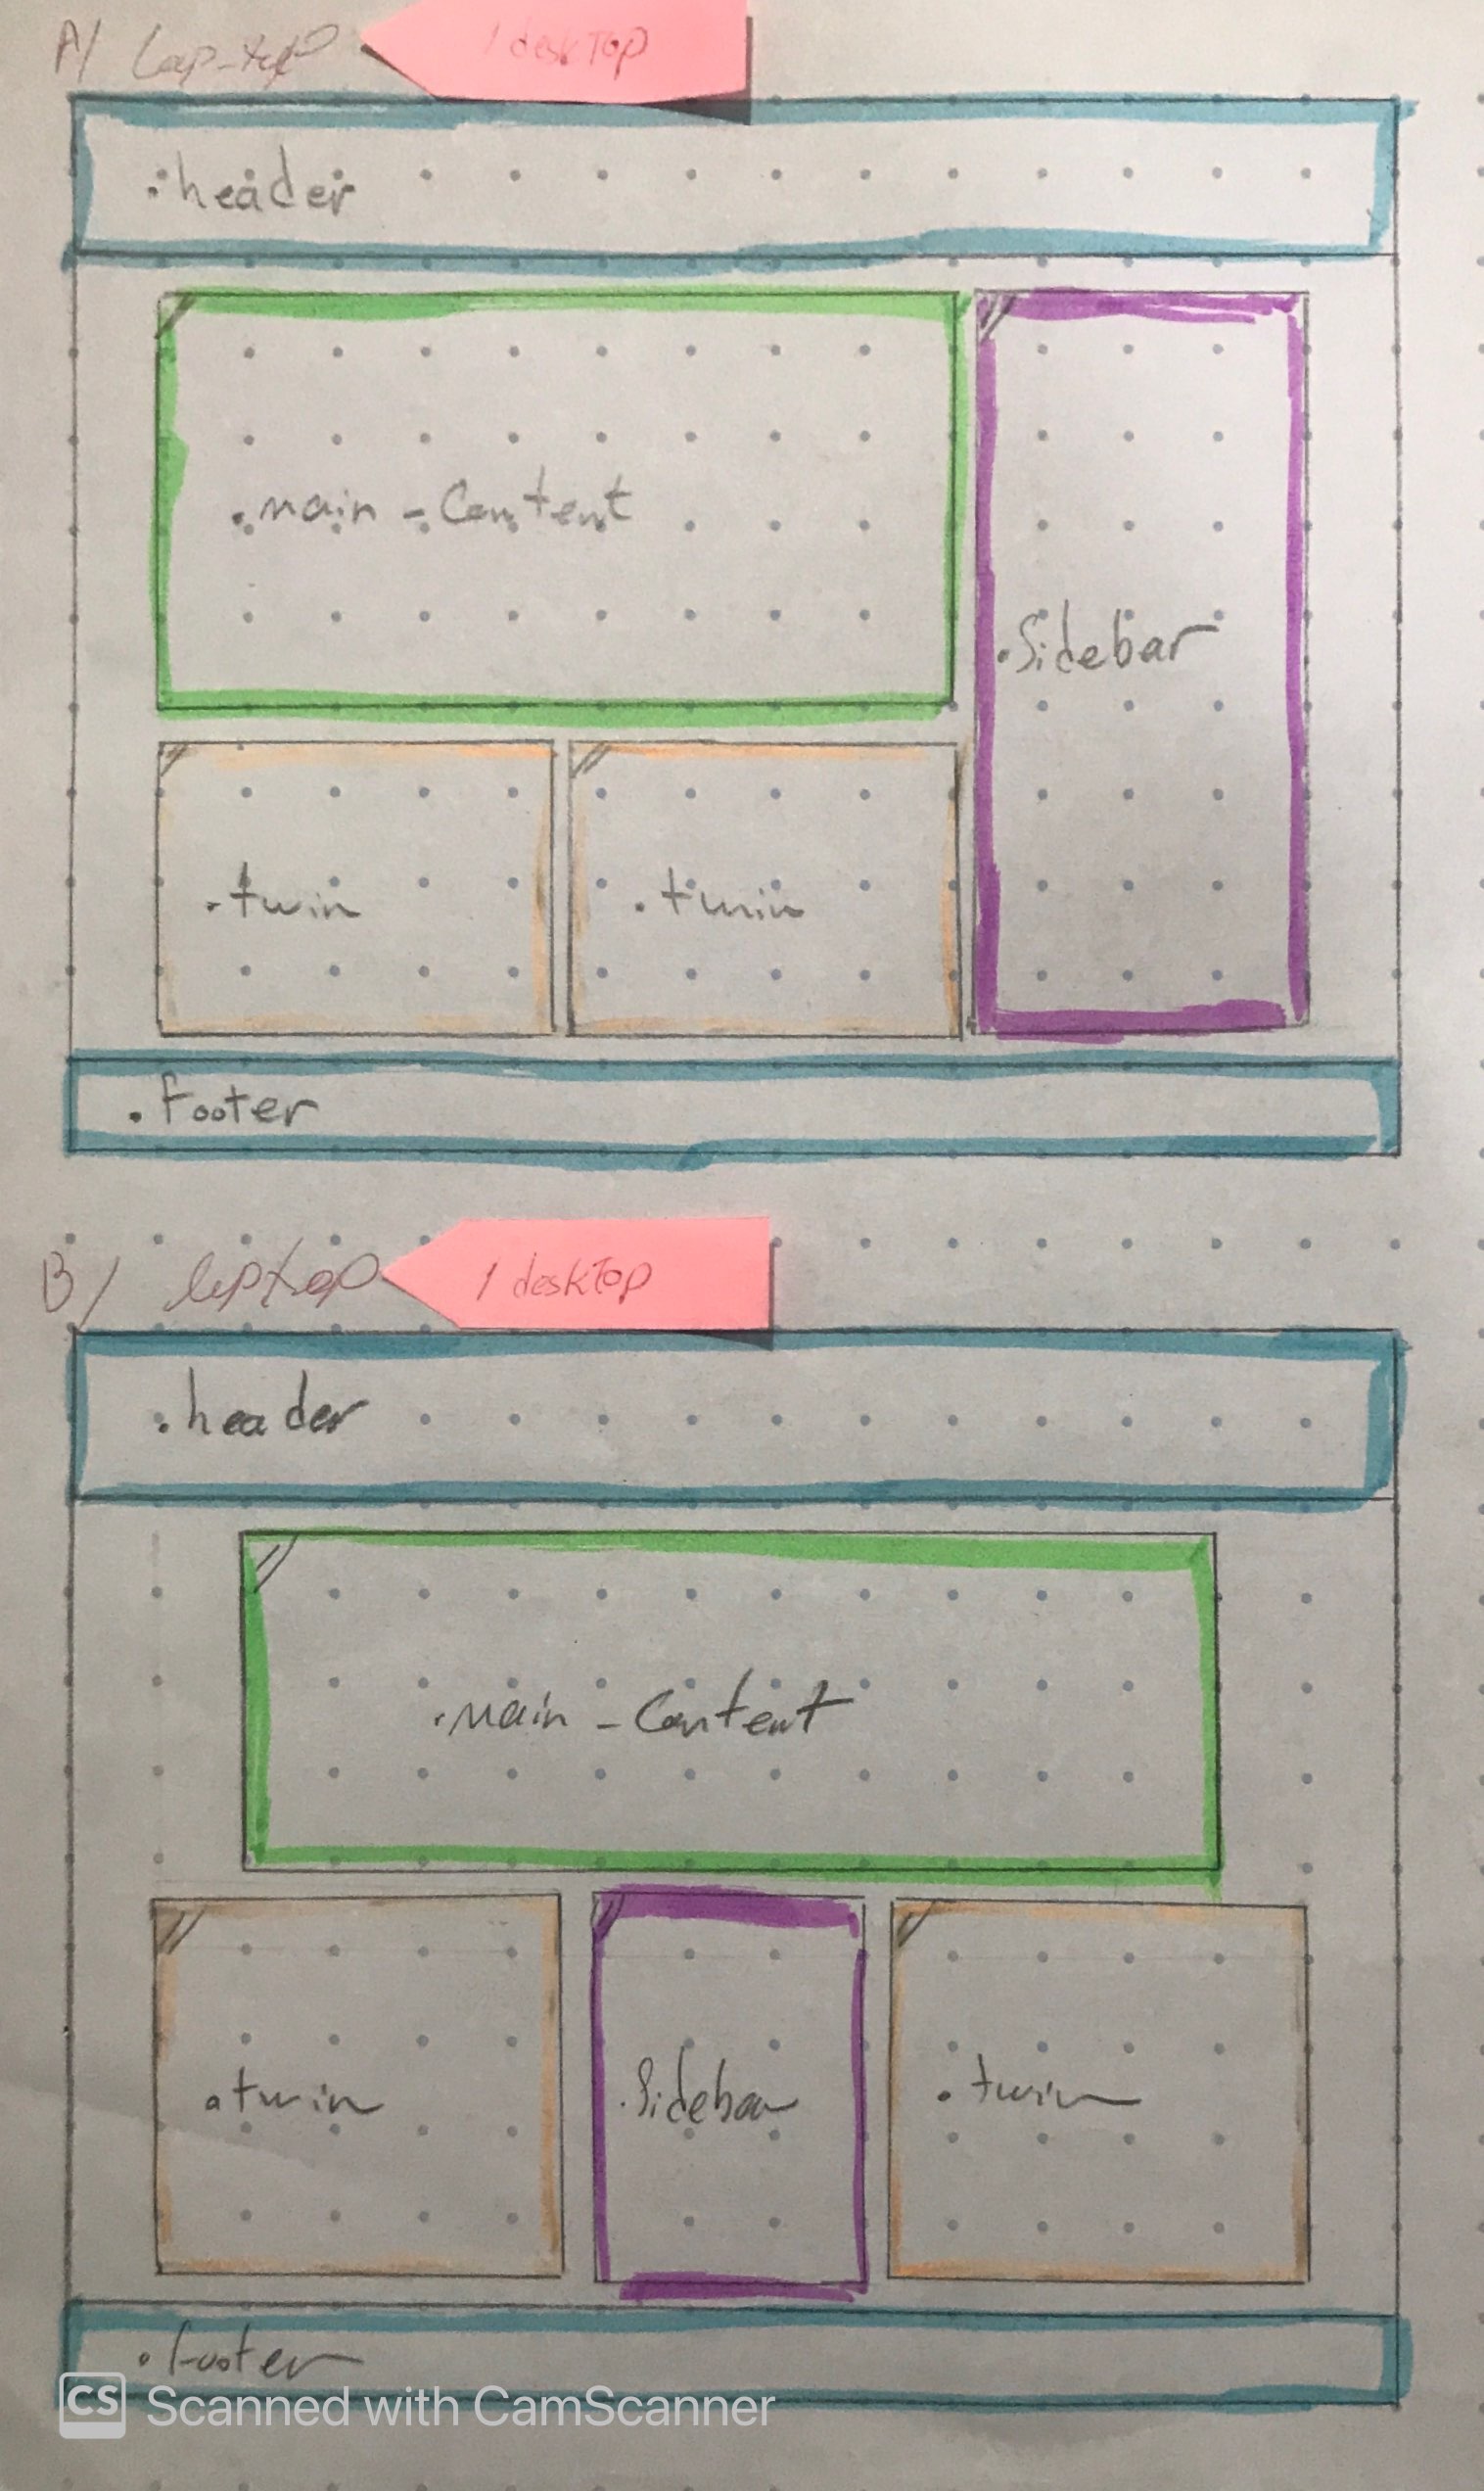 A/ Lap-top
/ deskTop
.header
.main - Content
.Sidebar
.twin
.twin
.footer
B/ laptop
/ deskTop
.header
.main - Content
.twin
.Sidebar
.twin
.footer
CS Scanned with CamScanner